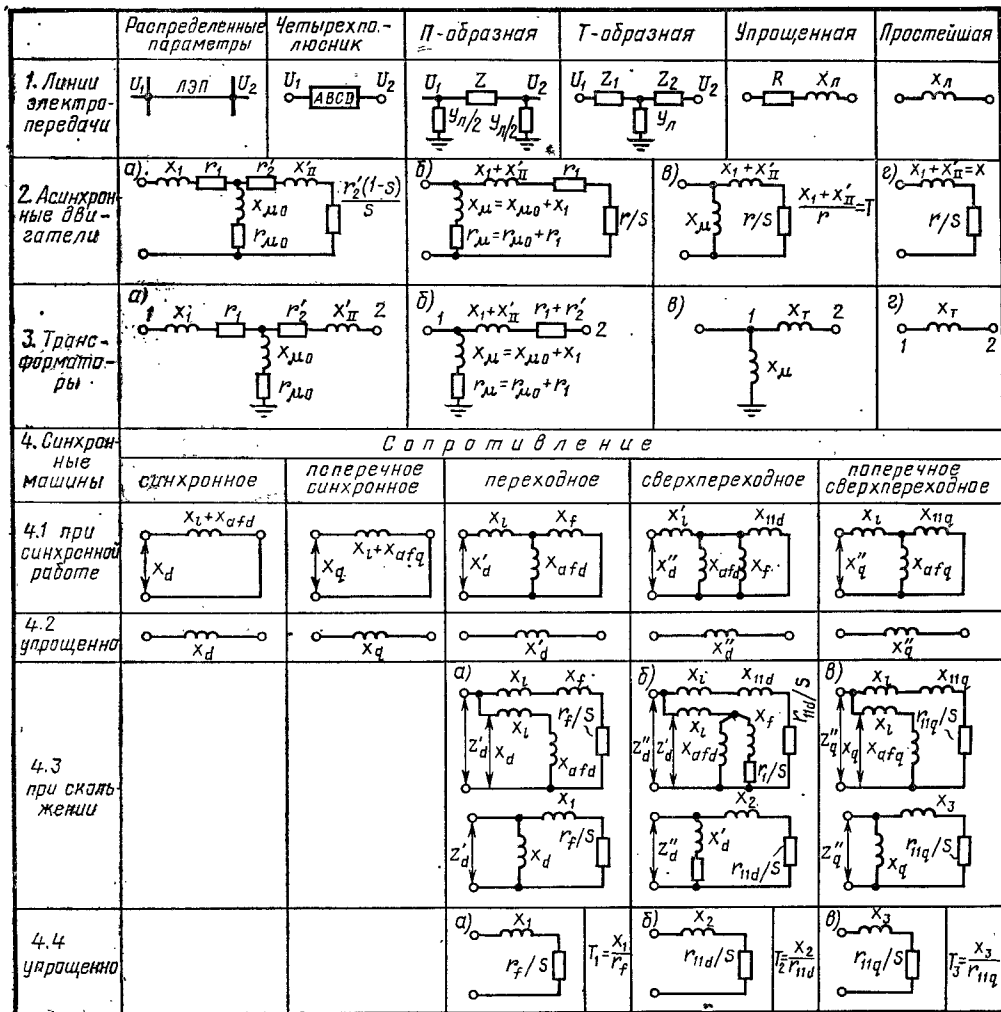 Распределенные параметры
Четырехполюсник
П-образная
Т-образная
Упрощенная
Простейшая
1. Линии электропередачи
U₁ ЛЭП U₂
U₁ ABCD U₂
U₁ Z U₂
Yл/2 Yл/2
U₁ Z₁ Z₂ U₂
Yл
R Xл
Xл
2. Асинхронные двигатели
а) X₁ r₁ r₂′ X′II
r₂′(1-s)/s
Xμ0
rμ0
б) X₁+X′II r₁
Xμ=Xμ0+X₁
rμ=rμ0+r₁
r/S
в) X₁+X′II
Xμ
r/S
X₁+X′II/r=T
г) X₁+X′II=X
r/S
3. Трансформаторы
а) 1 X₁ r₁ r₂′ X′II 2
Xμ0
rμ0
б) 1 X₁+X′II r₁+r₂′ 2
Xμ=Xμ0+X₁
rμ=rμ0+r₁
в) 1 Xт 2
Xμ
г) Xт
1 2
4. Синхронные машины
Сопротивление
синхронное
поперечное синхронное
переходное
сверхпереходное
поперечное сверхпереходное
4.1 при синхронной работе
Xl+Xafd
Xd
Xl+Xafq
Xq
Xl Xf
X′d Xafd
X′l X11d
X″d Xafd Xf
Xl X11q
X″q Xafq
4.2 упрощенно
Xd
Xq
X′d
X″d
X″q
4.3 при скольжении
а) Xl Xf
rf/S
Xl
Z′d Xd Xafd
б) Xl X11d
r11d/S
Xl Xf
Z″d Z′d Xafd
r₁/S
в) Xl X11q
r11q/S
Xl
Z″q Xq Xafq
X₁
Z′d Xd rf/S
X₂
Z″d X′d r11d/S
X₃
Z″q Xq r11q/S
4.4 упрощенно
а) X₁
rf/S
T₁=X₁/rf
б) X₂
r11d/S
T₂=X₂/r11d
в) X₃
r11q/S
T₃=X₃/r11q